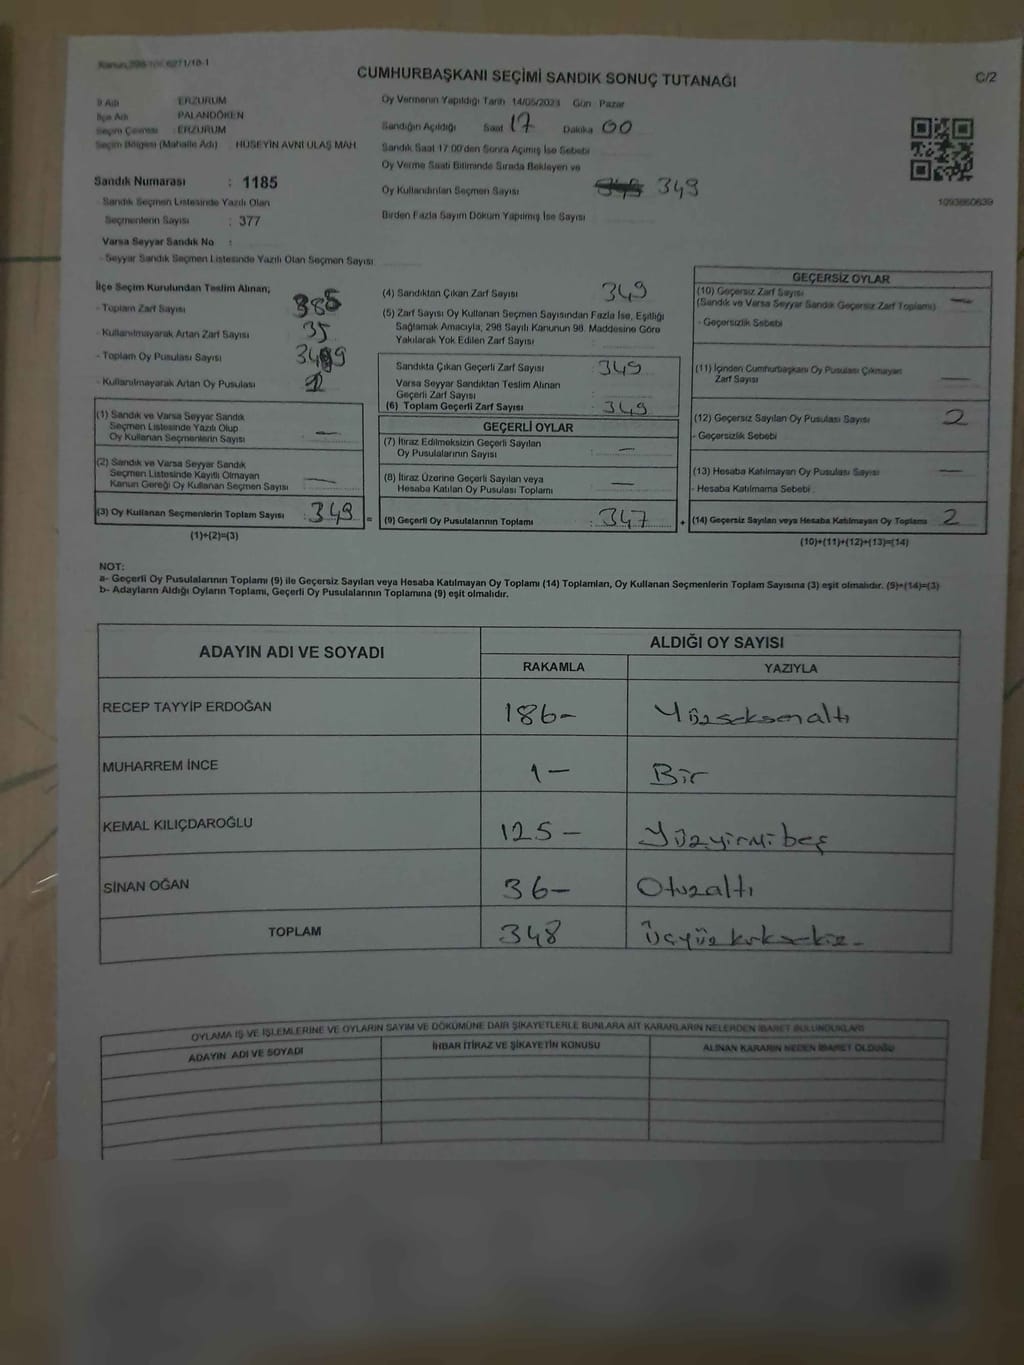 CUMHURBAŞKANI SEÇİMİ SANDIK SONUÇ TUTANAĞI
C/2
İl Adı : ERZURUM
İlçe Adı : PALANDÖKEN
Seçim Çevresi : ERZURUM
Seçim Bölgesi (Mahalle Adı) : HÜSEYİN AVNİ ULAŞ MAH
Sandık Numarası : 1185
- Sandık Seçmen Listesinde Yazılı Olan
Seçmenlerin Sayısı : 377
Varsa Seyyar Sandık No :
- Seyyar Sandık Seçmen Listesinde Yazılı Olan Seçmen Sayısı
Oy Vermenin Yapıldığı Tarih 14/05/2023 Gün Pazar
Sandığın Açıldığı Saat 17 Dakika 00
Sandık Saat 17:00'den Sonra Açımış İse Sebebi
Oy Verme Saati Bitiminde Sırada Bekleyen ve
Oy Kullandırılan Seçmen Sayısı 349
Birden Fazla Sayım Döküm Yapılmış İse Sayısı
1093860639
İlçe Seçim Kurulundan Teslim Alınan;
- Toplam Zarf Sayısı
- Kullanılmayarak Artan Zarf Sayısı 35
- Toplam Oy Pusulası Sayısı
- Kullanılmayarak Artan Oy Pusulası
(1) Sandık ve Varsa Seyyar Sandık
Seçmen Listesinde Yazılı Olup
Oy Kullanan Seçmenlerin Sayısı : —
(2) Sandık ve Varsa Seyyar Sandık
Seçmen Listesinde Kayıtlı Olmayan
Kanun Gereği Oy Kullanan Seçmen Sayısı : —
(3) Oy Kullanan Seçmenlerin Toplam Sayısı : 349 =
(1)+(2)=(3)
(4) Sandıktan Çıkan Zarf Sayısı 349
(5) Zarf Sayısı Oy Kullanan Seçmen Sayısından Fazla İse, Eşitliği
Sağlamak Amacıyla, 298 Sayılı Kanunun 98. Maddesine Göre
Yakılarak Yok Edilen Zarf Sayısı :
Sandıkta Çıkan Geçerli Zarf Sayısı : 349
Varsa Seyyar Sandıktan Teslim Alınan
Geçerli Zarf Sayısı :
(6) Toplam Geçerli Zarf Sayısı : 349
GEÇERLİ OYLAR
(7) İtiraz Edilmeksizin Geçerli Sayılan
Oy Pusulalarının Sayısı : —
(8) İtiraz Üzerine Geçerli Sayılan veya
Hesaba Katılan Oy Pusulası Toplamı : —
(9) Geçerli Oy Pusulalarının Toplamı : 347 +
GEÇERSİZ OYLAR
(10) Geçersiz Zarf Sayısı
(Sandık ve Varsa Seyyar Sandık Geçersiz Zarf Toplamı) —
- Geçersizlik Sebebi
(11) İçinden Cumhurbaşkanı Oy Pusulası Çıkmayan
Zarf Sayısı —
(12) Geçersiz Sayılan Oy Pusulası Sayısı 2
- Geçersizlik Sebebi
(13) Hesaba Katılmayan Oy Pusulası Sayısı —
- Hesaba Katılmama Sebebi
(14) Geçersiz Sayılan veya Hesaba Katılmayan Oy Toplamı 2
(10)+(11)+(12)+(13)=(14)
NOT:
a- Geçerli Oy Pusulalarının Toplamı (9) ile Geçersiz Sayılan veya Hesaba Katılmayan Oy Toplamı (14) Toplamları, Oy Kullanan Seçmenlerin Toplam Sayısına (3) eşit olmalıdır. (9)+(14)=(3)
b- Adayların Aldığı Oyların Toplamı, Geçerli Oy Pusulalarının Toplamına (9) eşit olmalıdır.
ADAYIN ADI VE SOYADI
ALDIĞI OY SAYISI
RAKAMLA YAZIYLA
RECEP TAYYİP ERDOĞAN 186- Yüzseksenaltı
MUHARREM İNCE 1- Bir
KEMAL KILIÇDAROĞLU 125- Yüzyirmibeş
SİNAN OĞAN 36- Otuzaltı
TOPLAM 348
OYLAMA İŞ VE İŞLEMLERİNE VE OYLARIN SAYIM VE DÖKÜMÜNE DAİR ŞİKAYETLERLE BUNLARA AİT KARARLARIN NELERDEN İBARET BULUNDUKLARI
ADAYIN ADI VE SOYADI İHBAR İTİRAZ VE ŞİKAYETİN KONUSU ALINAN KARARIN NEDEN İBARET OLDUĞU